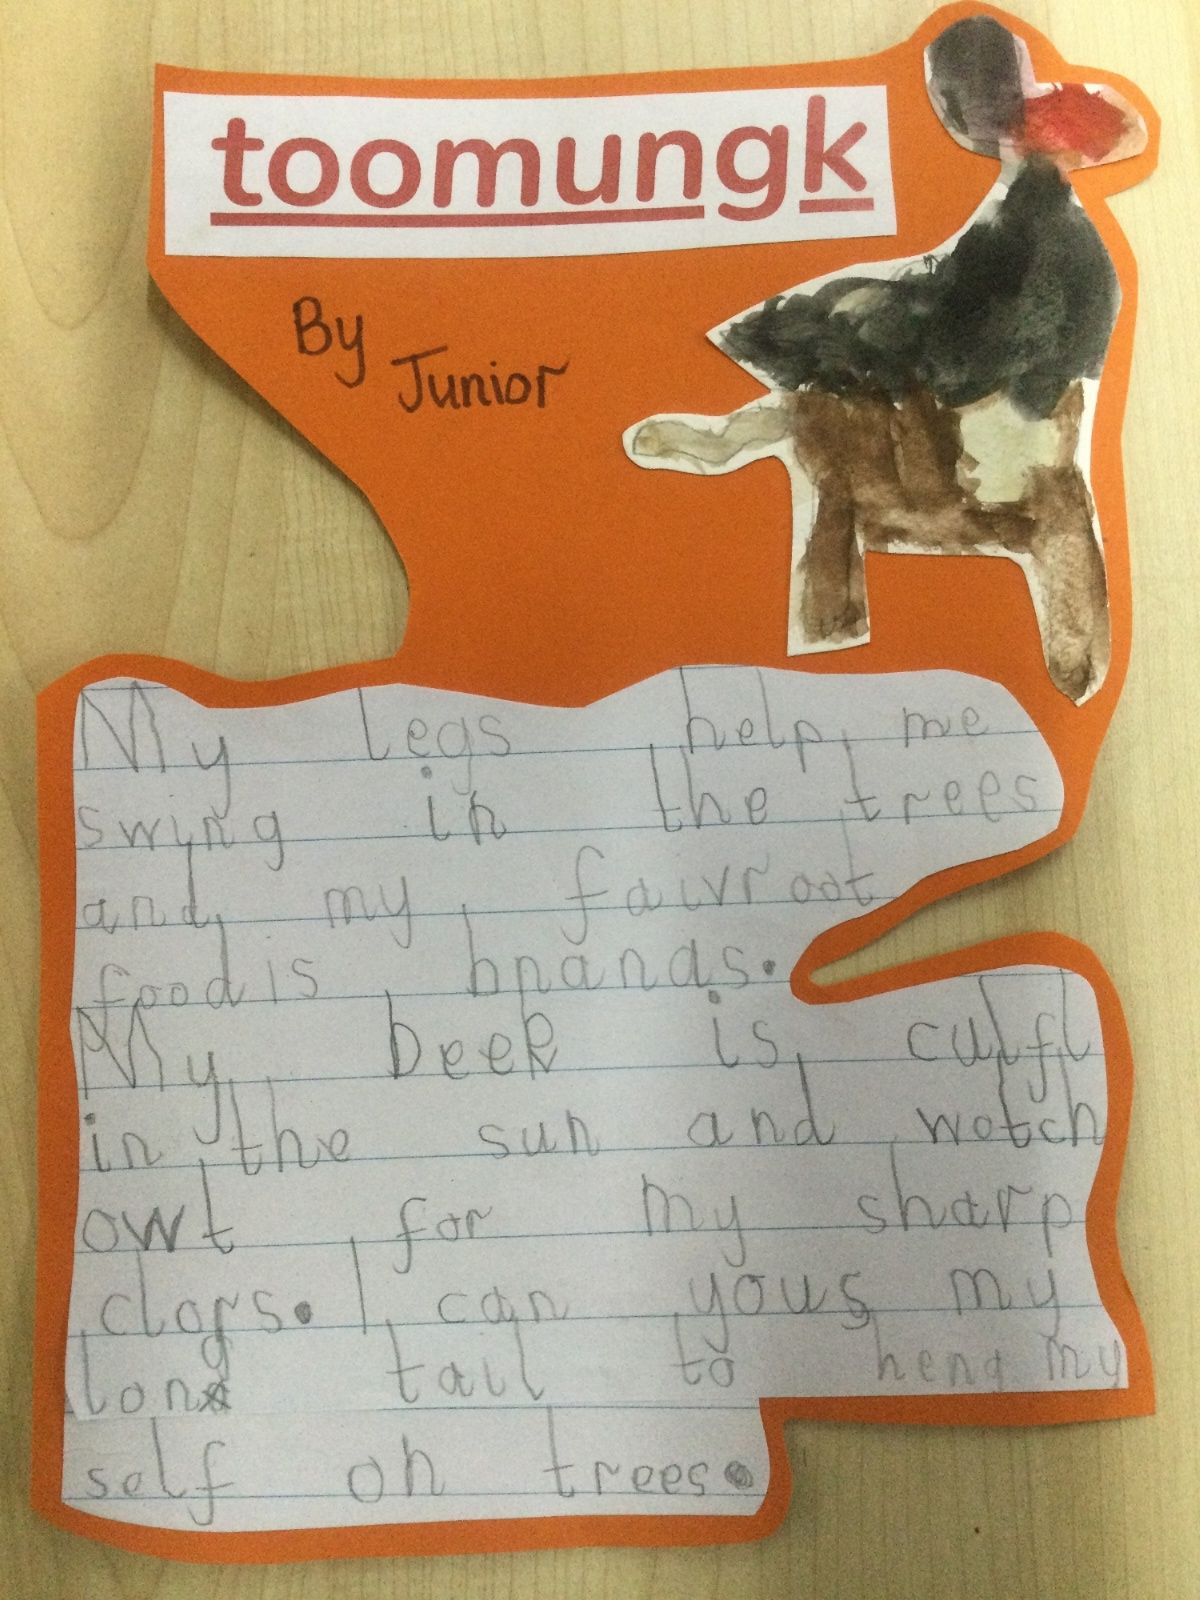 toomungk
By
Junior
My legs help me
swing in the trees
and my faivroot
food is bnanas.
My beek is culfl
in the sun and wotch
owt for my sharp
clors. I can yous my
long tail to heng my
self on trees.